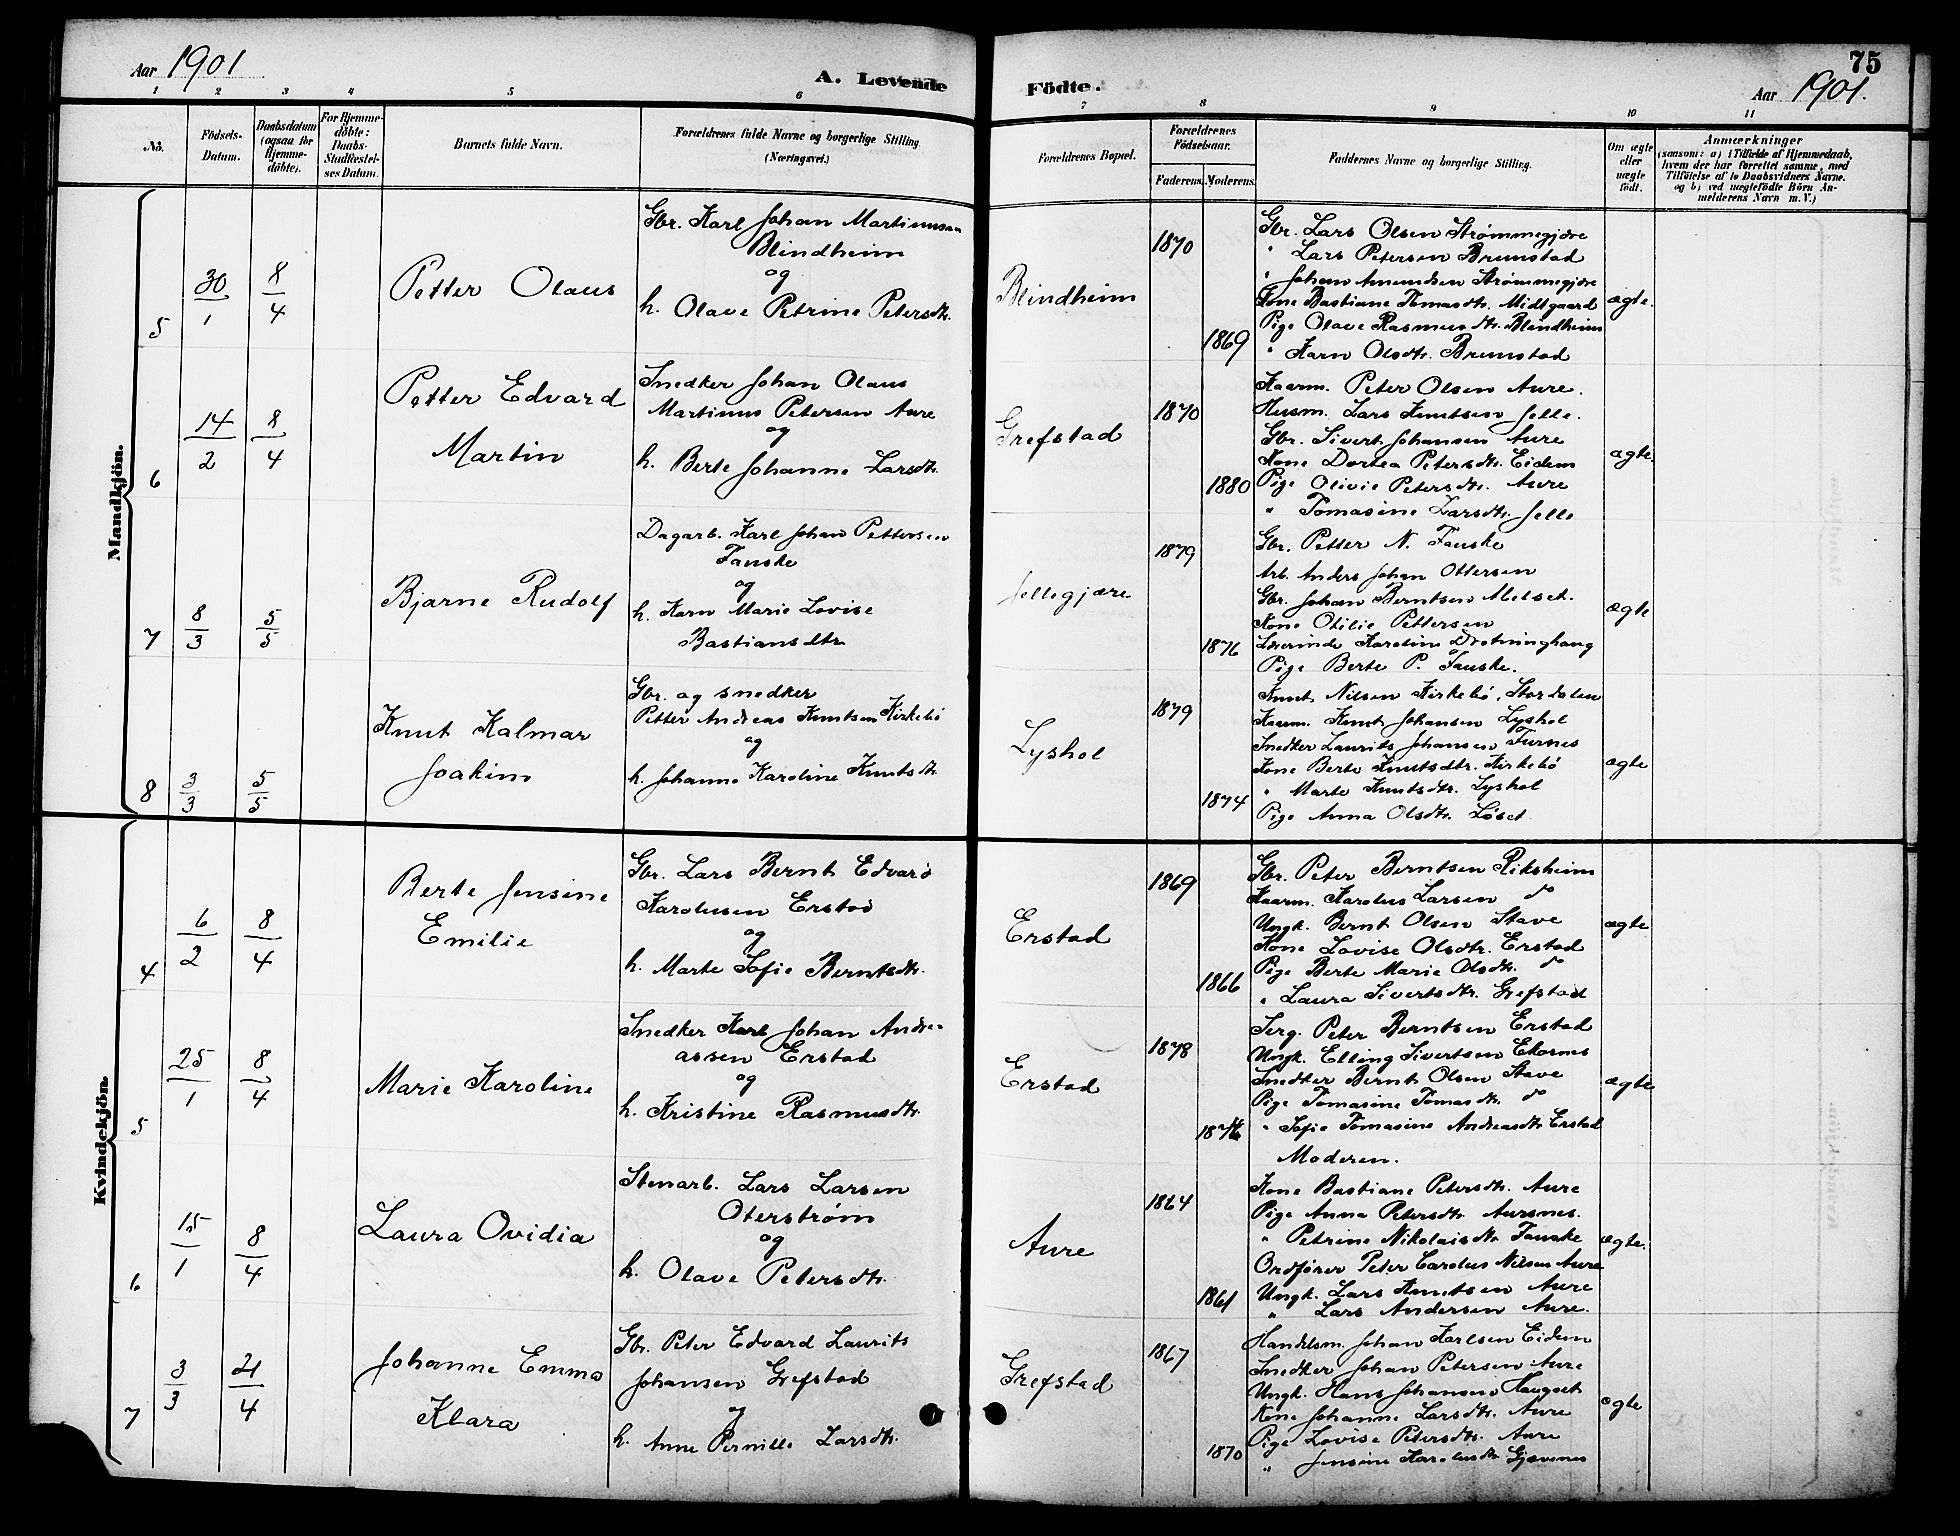 Aar 1901
A. Levende
Födte.
75
Aar 1901.
1 2 3 4 5 6 7 8 9 10 11
No.
Födsels-
Datum.
Daabsdatum
(ogsaa for
Hjemme-
döbte).
For Hjemme-
döbte:
Daabs-
Stadfæstel-
ses Datum.
Barnets fulde Navn.
Forældrenes fulde Navne og borgerlige Stilling
(Næringsvei.)
Forældrenes Bopæl.
Forældrenes
Födselsaar.
Faderens.
Moderens.
Faddernes Navne og borgerlige Stilling.
Om ægte
eller
uægte
födt.
Anmærkninger
(saasom: a) i Tilfælde af Hjemmedaab,
hvem der har forrettet samme, med
Tilföielse af to Daabsvidners Navne.
og b) ved uægtefödte Börn An-
melderens Navn m.V.)
Mandkjön.
5
30/1
8/4
Petter Olaus
Gbr. Karl Johan Martinussen
Blindheim
og
h. Olave Petrine Petersdtr.
Blindheim
1870
1869
Gbr. Lars Olsen Strømmegjære
" Lars Petersen Brunstad
" Johan Amundsen Strømmegjære
Kone Bastiane Tomasdtr. Midtgaard
Pige Olave Rasmusdtr. Blindheim
" Karn Olsdtr. Brunstad
ægte.
6
14/2
8/4
Petter Edvard
Martin
Snedker Johan Olaus
Martinus Petersen Aure
og
h. Berte Johanne Larsdtr.
Grefstad
1870
1880
Kaarm. Peter Olsen Aure.
Husm. Lars Knutsen Jelle.
Gbr. Sivert Johansen Aure
Kone Dortea Petersdtr. Eidem
Pige Olivie Petersdtr. Aure
" Tomasine Larsdtr. Jelle
ægte.
7
8/3
5/5
Bjarne Rudolf
Dagarb. Karl Johan Pettersen
Fauske
og
h. Karn Marie Lovise
Bastiansdtr
Jellegjære
1879
1876
Gbr. Petter N. Fauske
Arb. Anders Johan Ottersen
Gbr. Johan Berntsen Melset.
Kone Otilie Pettersen
Lærerinde Karoline Drotninghaug
Pige Berte P. Fauske.
ægte
8
3/3
5/5
Knut Kalmar
Joakim
Gbr. og snedker
Petter Andreas Knutsen Kirkebö
og
h. Johanne Karoline Knutsdtr.
Lyshol
1879
1874
Knut Nilsen Kirkebö, Stordalen
Kaarm. Knut Johansen Lyshol
Snedker Laurits Johansen Furnes
Kone Berte Knutsdtr. Kirkebö
" Marte Knutsdtr. Lyshol
Pige Anna Olsdtr. Løset
ægte
Kvindekjön.
4
6/2
8/4
Berte Jensine
Emilie
Gbr. Lars Bernt Edvard
Karolusen Erstad
og
h. Marte Sofie Berntsdtr.
Erstad
1869
1866
Gbr. Peter Berntsen Riksheim
Kaarm. Karolus Larsen do
Ungk. Bernt Olsen Stave
Kone Lovise Olsdtr. Erstad
Pige Berte Marie Olsdtr. do
" Laura Sivertsdtr. Grefstad
ægte
5
25/1
8/4
Marie Karoline
Snedker Karl Johan Andre-
assen Erstad
og
h. Kristine Rasmusdtr.
Erstad
1878
1876
Serg. Peter Berntsen Erstad
Ungk. Elling Sivertsen Ekornes
Snedker Bernt Olsen Stave
Pige Tomasine Tomasdtr. do
" Sofie Tomasine Andreasdtr Erstad
Moderen.
ægte
6
15/1
8/4
Laura Ovidia
Stenarb. Lars Larsen
Oterstrøm
og
h. Olave Petersdtr.
Aure
1864
1861
Kone Bastiane Petersdtr. Aure
Pige Anna Petersdtr Aursnes.
" Petrine Nikolaisdtr. Fauske
Ordfører Peter Carolus Nilsen Aure
Ungk. Lars Knutsen Aure
" Lars Andersen Aure.
ægte.
7
3/3
21/4
Johanne Emma
Klara
Gbr. Peter Edvard Laurits
Johansen Grefstad
og
h. Anne Pernille Larsdtr.
Grefstad
1867
1870
Handelsm. Johan Karlsen Eidem
Snedker Johan Petersen Aure
Ungk. Hans Johansen Haugset
Kone Johanne Larsdtr. Aure
Pige Lovise Petersdtr. Aure
" Jensine Karolusdtr Gjævenes
ægte